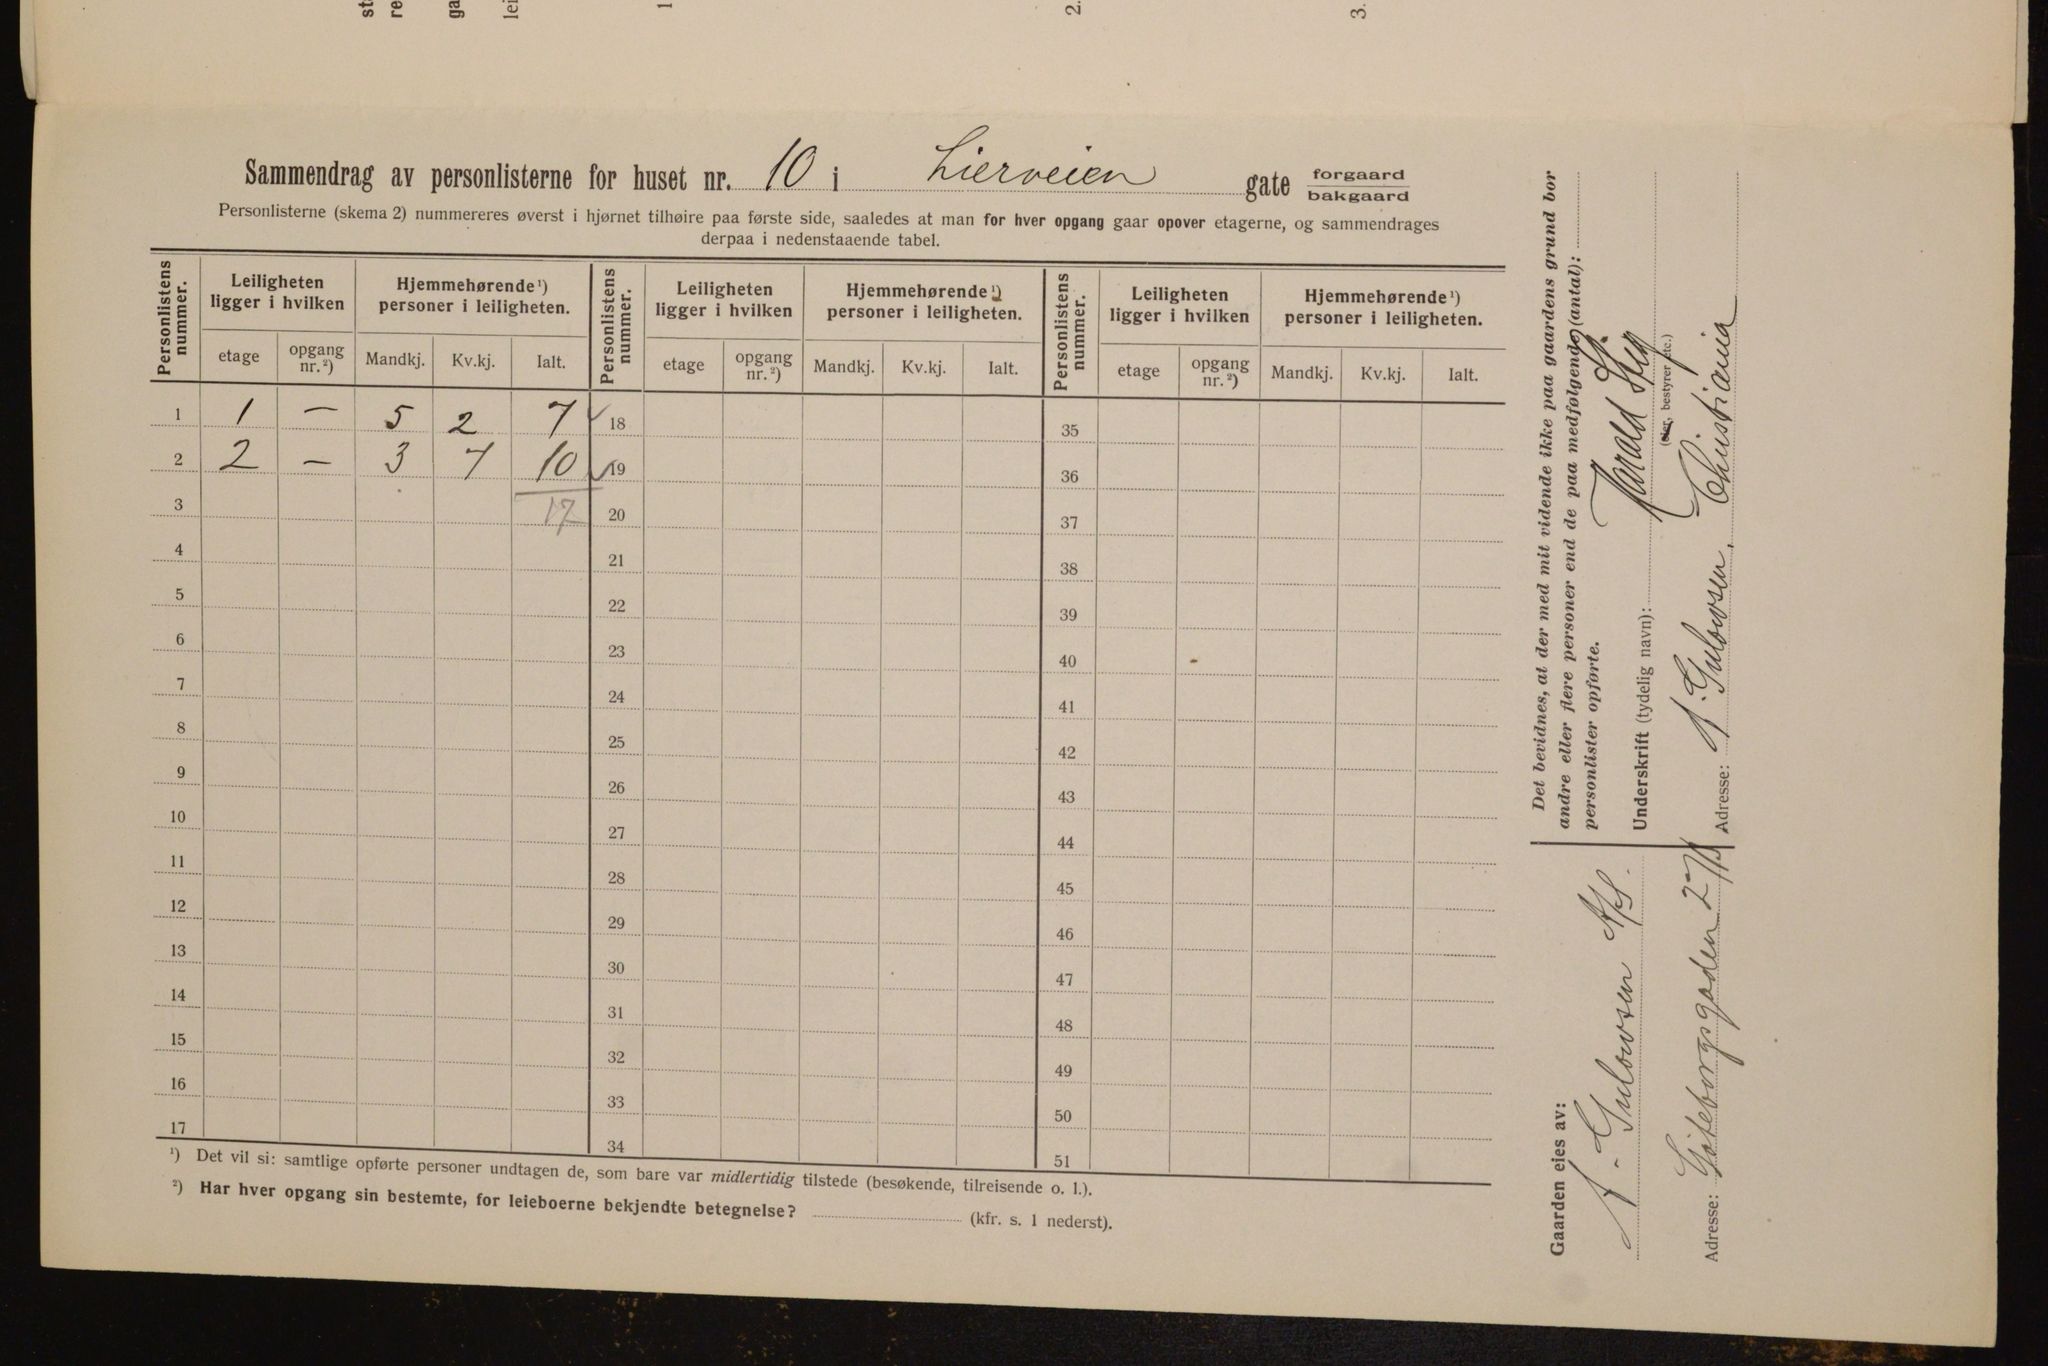 st
re
ga
lei
1
2.
3.
Sammendrag av personlisterne for huset nr. 10 i Lierveien gate forgaard
bakgaard
Personlisterne (skema 2) nummereres øverst i hjørnet tilhøire paa første side, saaledes at man for hver opgang gaar opover etagerne, og sammendrages
derpaa i nedenstaaende tabel.
Personlistens nummer. Leiligheten ligger i hvilken Hjemmehørende ¹) personer i leiligheten. Personlistens nummer. Leiligheten ligger i hvilken Hjemmehørende ¹) personer i leiligheten. Personlistens nummer. Leiligheten ligger i hvilken Hjemmehørende ¹) personer i leiligheten.
etage opgang nr. ²) Mandkj. Kv.kj. Ialt. etage opgang nr. ²) Mandkj. Kv.kj. Ialt. etage opgang nr. ²) Mandkj. Kv.kj. Ialt.
1 1 — 5 2 7 ✓ 18 35
2 2 — 3 7 10 ✓ 19 36
3 17 20 37
4 21 38
5 22 39
6 23 40
7 24 41
8 25 42
9 26 43
10 27 44
11 28 45
12 29 46
13 30 47
14 31 48
15 32 49
16 33 50
17 34 51
¹) Det vil si: samtlige opførte personer undtagen de, som bare var midlertidig tilstede (besøkende, tilreisende o. l.).
²) Har hver opgang sin bestemte, for leieboerne bekjendte betegnelse? (kfr. s. 1 nederst).
Det bevidnes, at der med mit vidende ikke paa gaardens grund bor
andre eller flere personer end de paa medfølgende (antal): 2
personlister opførte.
Underskrift (tydelig navn): Harald
(eier, bestyrer etc.)
Adresse: A. Gulowsen, Christiania
Gaarden eies av:
A. Gulowsen A/S.
Adresse: Göteborggaden 27/b